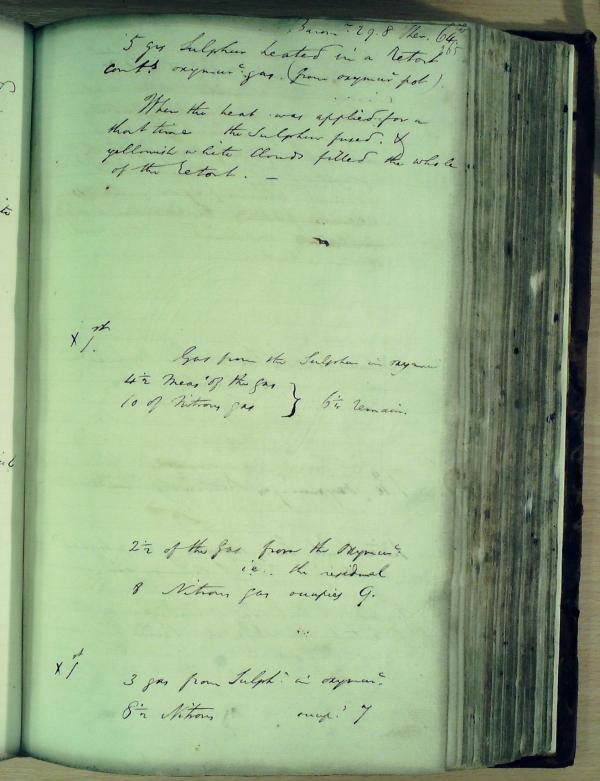 Barom.r 29.8 Ther. 64
265
5 grs Sulphur heated in a Retort
cont.g oxymur.c gas. (from oxymur pot)
When the heat was applied for a
short time the Sulphur fused. &
yellowish white Clouds filled the whole
of the Retort. —
x 1st.
Gas from the Sulphur in oxymur
4½ Meas.s of the gas
10 of Nitrous gas } 6½ remain.
2½ of the Gas from the Oxymur.c
i.e. the residual
8 Nitrous gas occupies 9.
x 1st
3 gas from Sulph.r in oxymur.c
8½ Nitrous occup.s 7